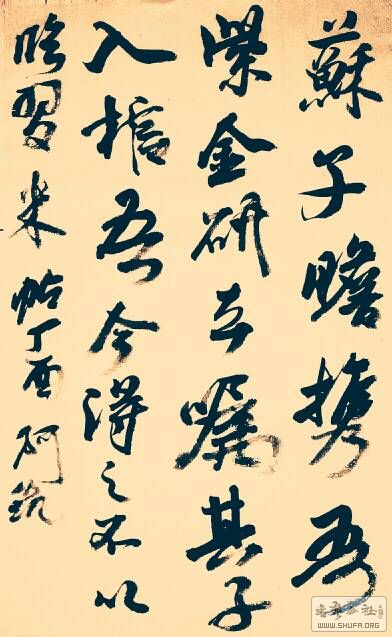 蘇子瞻携吾
紫金研去嘱其子
入棺吾今得之不以
臨習米帖丁酉阿
WWW.SHUFA.ORG